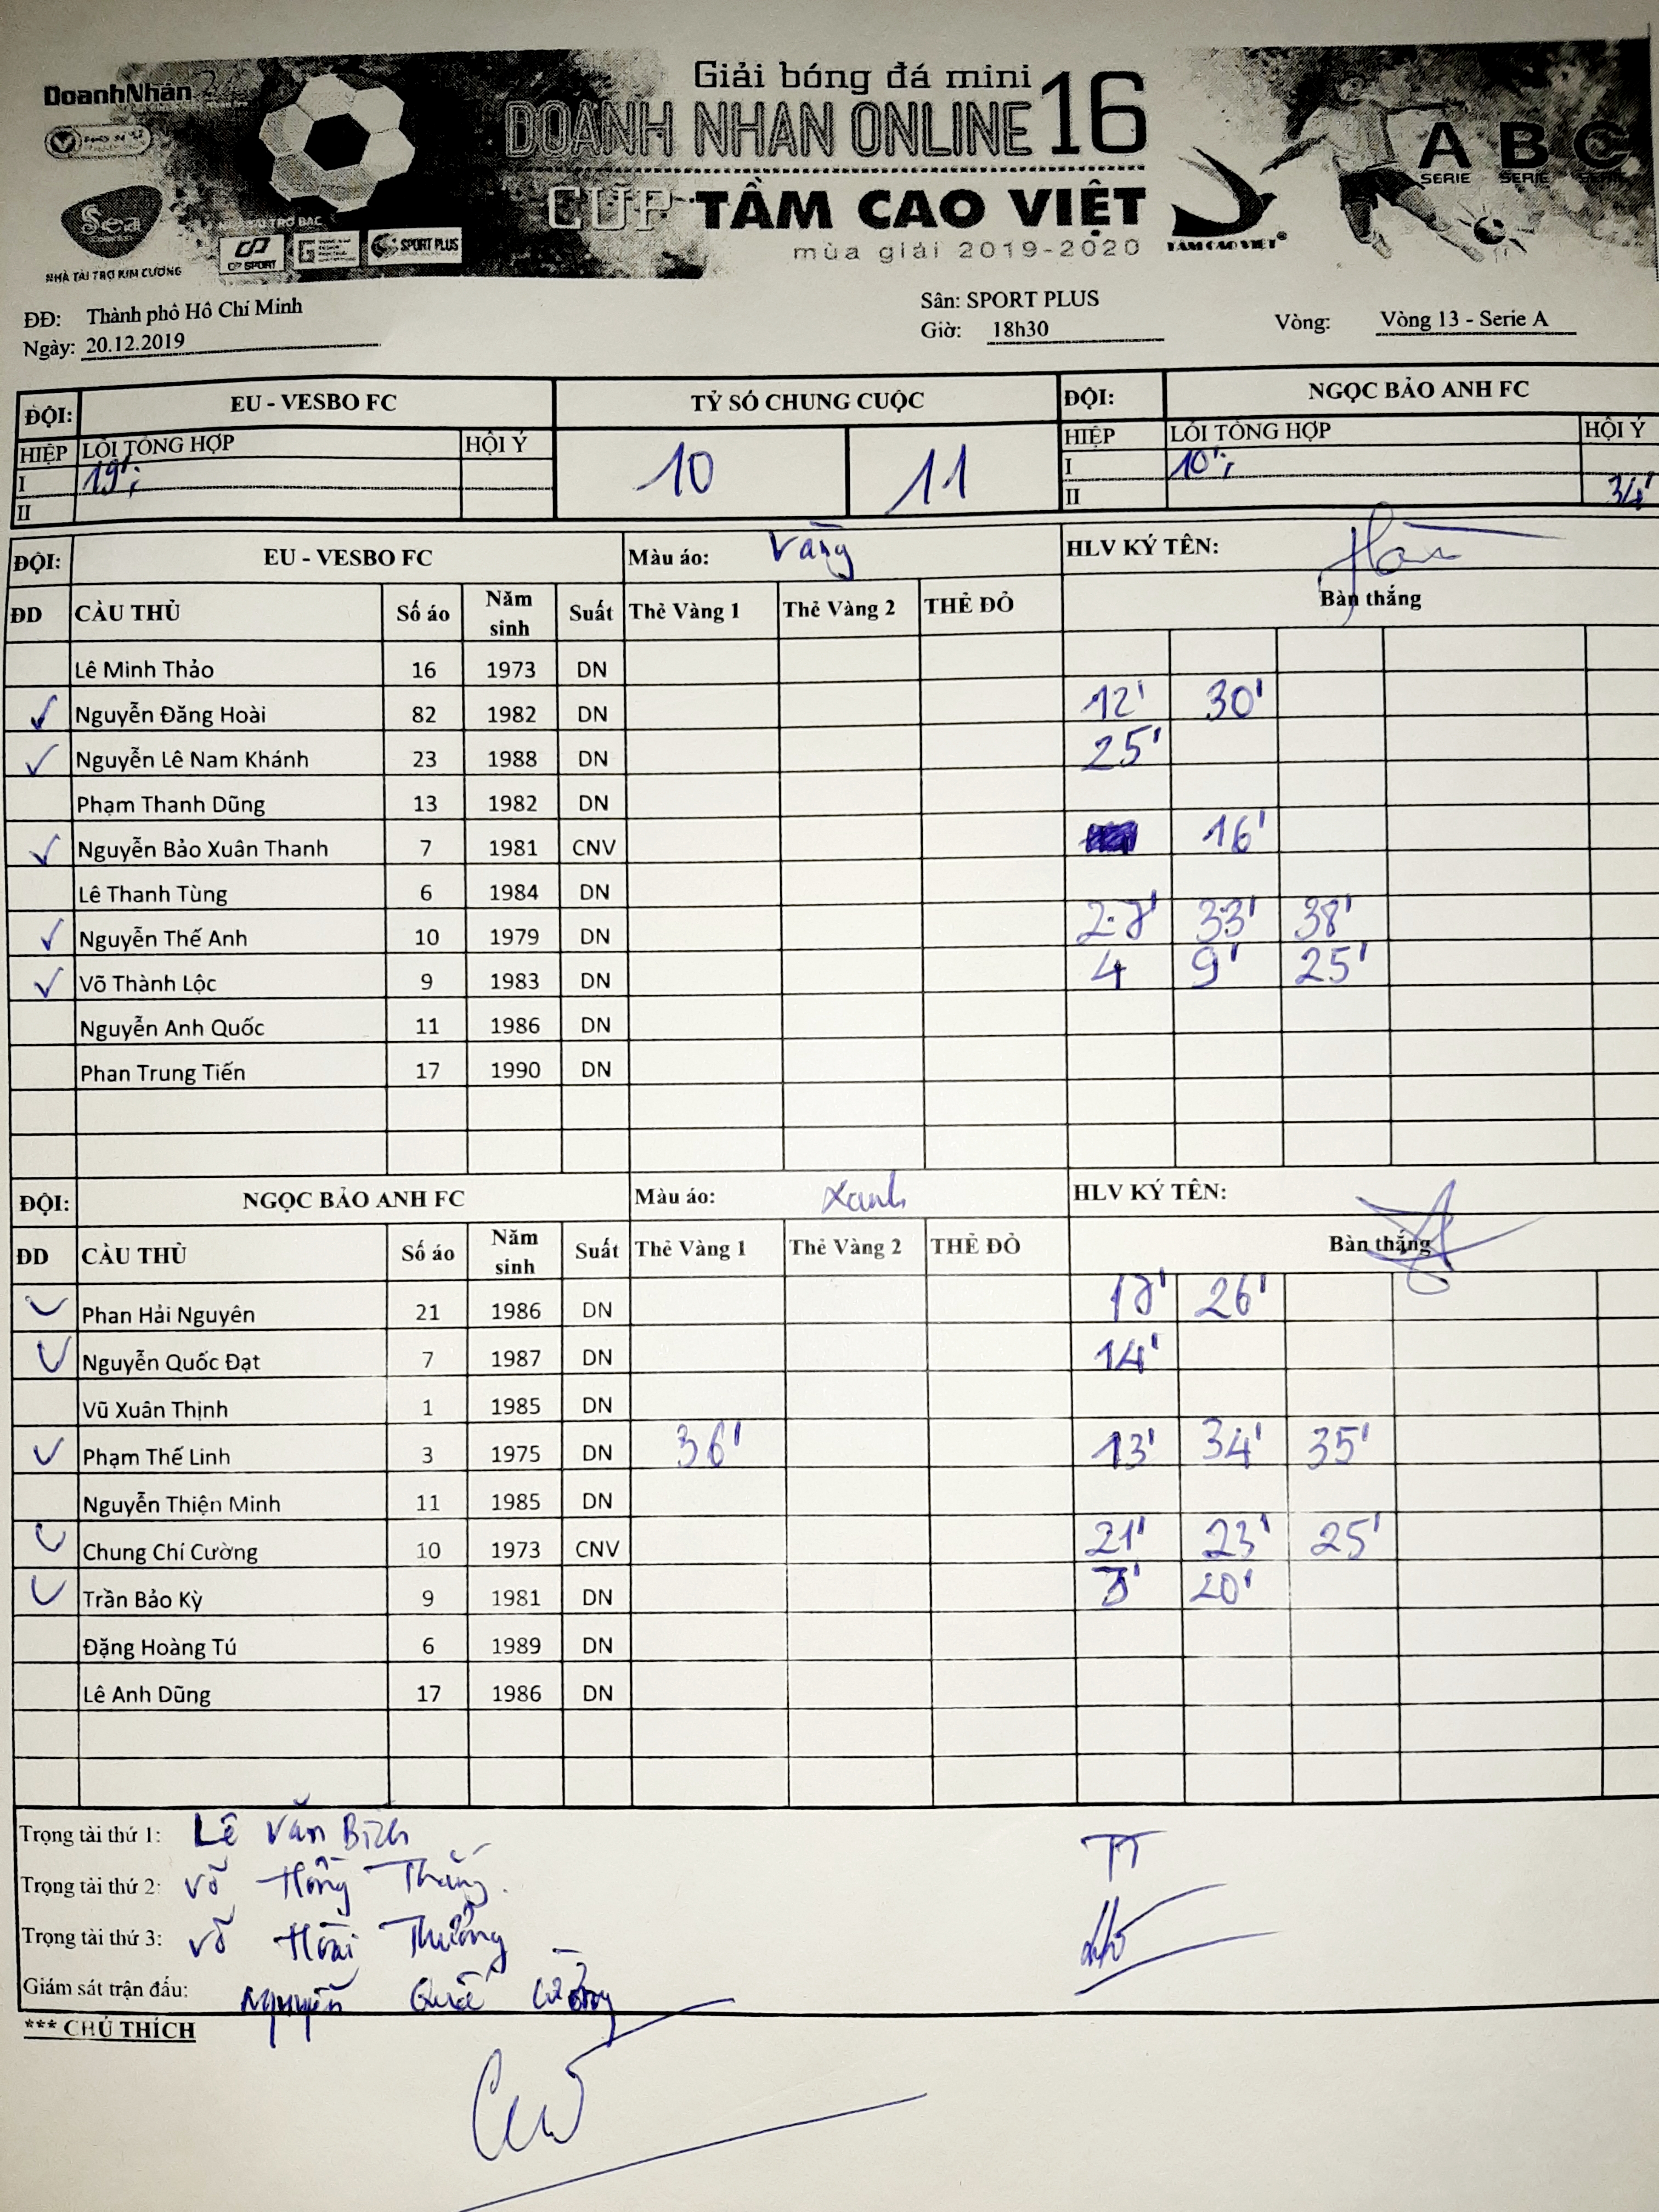 DoanhNhân
Giải bóng đá mini
DOANH NHÂN ONLINE 16
CUP TẦM CAO VIỆT
mùa giải 2019-2020
TẦM CAO VIỆT®
A B C
SERIE SERIE
Sea
NHÀ TÀI TRỢ KIM CƯƠNG
CP SPORT
SPORT PLUS
ĐĐ: Thành phố Hồ Chí Minh
Sân: SPORT PLUS
Ngày: 20.12.2019
Giờ: 18h30
Vòng: Vòng 13 - Serie A
ĐỘI: EU - VESBO FC TỶ SỐ CHUNG CUỘC ĐỘI: NGỌC BẢO ANH FC
HIỆP LỖI TỔNG HỢP HỘI Ý 10 11 HIỆP LỖI TỔNG HỢP HỘI Ý
I 19'; I 10';
II II 34'
ĐỘI: EU - VESBO FC Màu áo: Vàng HLV KÝ TÊN:
ĐD CẦU THỦ Số áo Năm sinh Suất Thẻ Vàng 1 Thẻ Vàng 2 THẺ ĐỎ Bàn thắng
Lê Minh Thảo 16 1973 DN
✓ Nguyễn Đăng Hoài 82 1982 DN 12' 30'
✓ Nguyễn Lê Nam Khánh 23 1988 DN 25'
Phạm Thanh Dũng 13 1982 DN
✓ Nguyễn Bảo Xuân Thanh 7 1981 CNV 16'
Lê Thanh Tùng 6 1984 DN
✓ Nguyễn Thế Anh 10 1979 DN 28' 33' 38'
✓ Võ Thành Lộc 9 1983 DN 4 9' 25'
Nguyễn Anh Quốc 11 1986 DN
Phan Trung Tiến 17 1990 DN
ĐỘI: NGỌC BẢO ANH FC Màu áo: Xanh HLV KÝ TÊN:
ĐD CẦU THỦ Số áo Năm sinh Suất Thẻ Vàng 1 Thẻ Vàng 2 THẺ ĐỎ Bàn thắng
✓ Phan Hải Nguyên 21 1986 DN 18' 26'
✓ Nguyễn Quốc Đạt 7 1987 DN 14'
Vũ Xuân Thịnh 1 1985 DN
✓ Phạm Thế Linh 3 1975 DN 36' 13' 34' 35'
Nguyễn Thiện Minh 11 1985 DN
✓ Chung Chí Cường 10 1973 CNV 21' 23' 25'
✓ Trần Bảo Kỳ 9 1981 DN 20'
Đặng Hoàng Tú 6 1989 DN
Lê Anh Dũng 17 1986 DN
Trọng tài thứ 1: Lê Văn Bình
TT
Trọng tài thứ 2: Võ Hồng Thắng.
Trọng tài thứ 3: Võ Hoài Thưởng
Giám sát trận đấu: Nguyễn Quốc Cường
*** CHÚ THÍCH